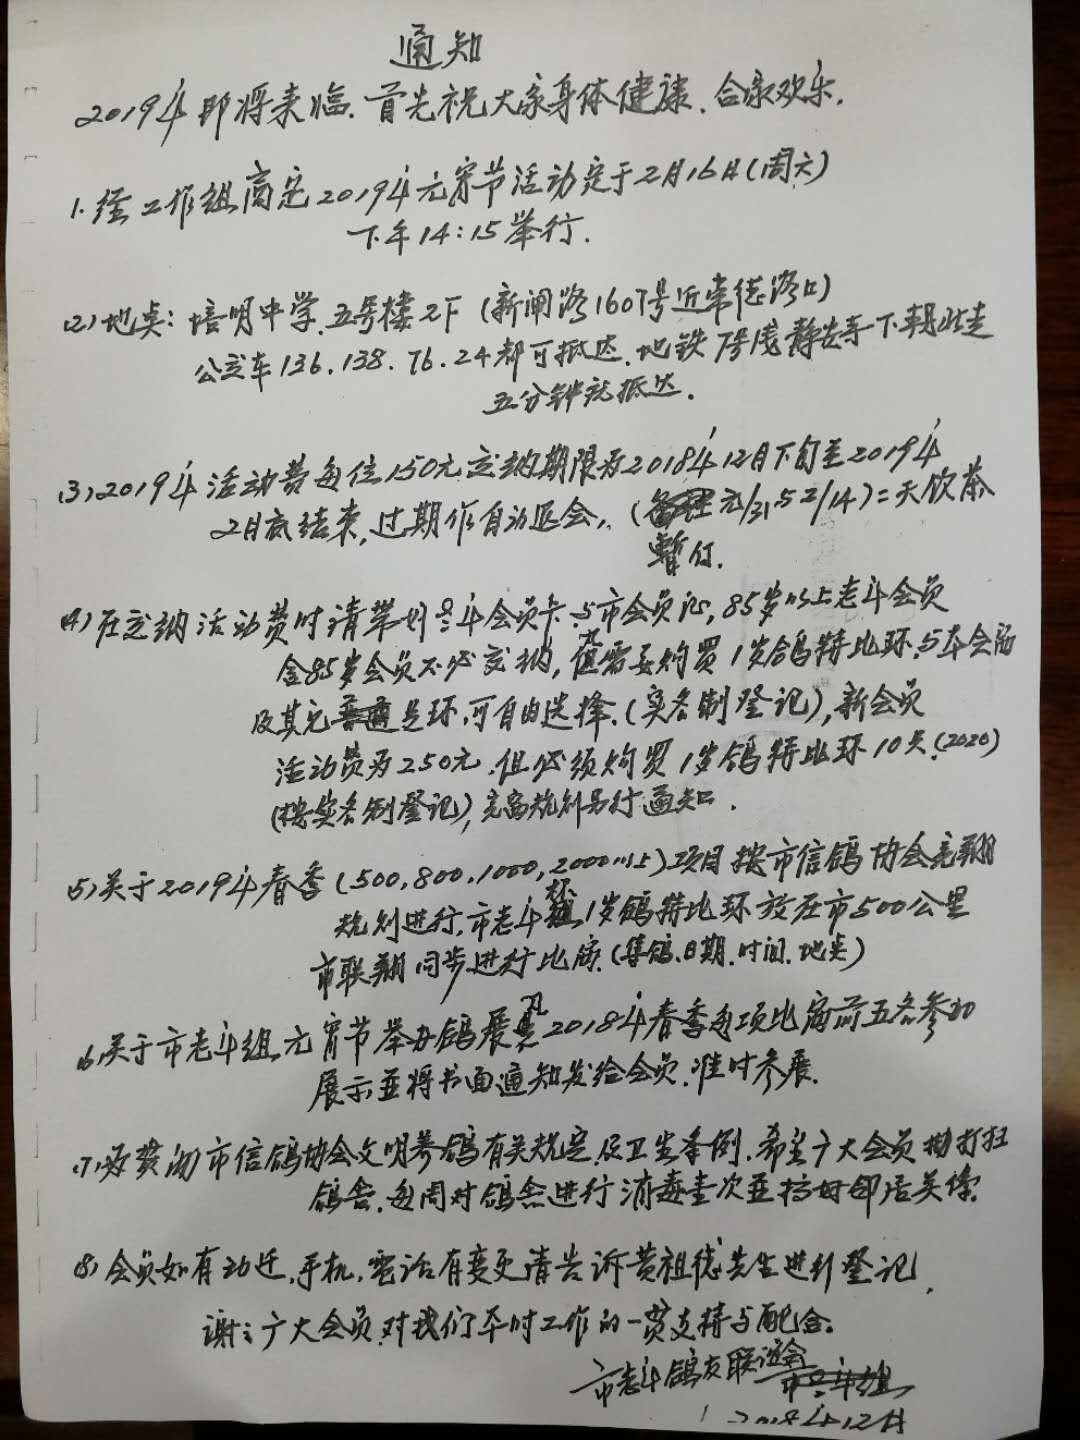 通知
2019年即将来临.首先祝大家身体健康.合家欢乐.
1.经工作组商定2019年元宵节活动定于2月16日(周六)
下午14:15举行.
(2)地点:培明中学.五号楼2F(新闸路1607号近常德路口)
公交车136.138.76.24都可抵达.地铁7号线静安寺下朝北走
五分钟就抵达.
(3)2019年活动费每位150元交纳期限为2018年12月下旬至2019年
2月底结束,过期作自动退会,(元/31 5 2/14)二天饮茶
暂停.
(4)在交纳活动费时请带好老年会员卡.与市会员证,85岁以上老年会员
含85岁会员不必交纳,但需要购买1岁鸽特比环.与本会
及其它足环.可自由选择.(实名制登记),新会员
活动费为250元.但必须购买1岁鸽特比环10只.(2020)
(按实名制登记),竞翔规则另行通知.
(5)关于2019年春季(500,800,1000,2000以上)项目按市信鸽协会竞翔
规则进行,市老年杯1岁鸽特比环放在市500公里
市联翔同步进行比赛.(集鸽.日期.时间.地点)
(6)关于市老年组元宵节举办鸽展凡2018年春季每项比赛前五名参加
展示并将书面通知发给会员.准时参展.
(7)市信鸽协会文明养鸽有关规定.卫生条例.希望广大会员勤打扫
鸽舍.每周对鸽舍进行消毒壹次并搞好邻居关系.
(8)会员如有动迁.手机.电话有变更请告诉黄祖德先生进行登记.
谢谢广大会员对我们平时工作的一贯支持与配合.
市老年鸽友联谊会
2018年12月